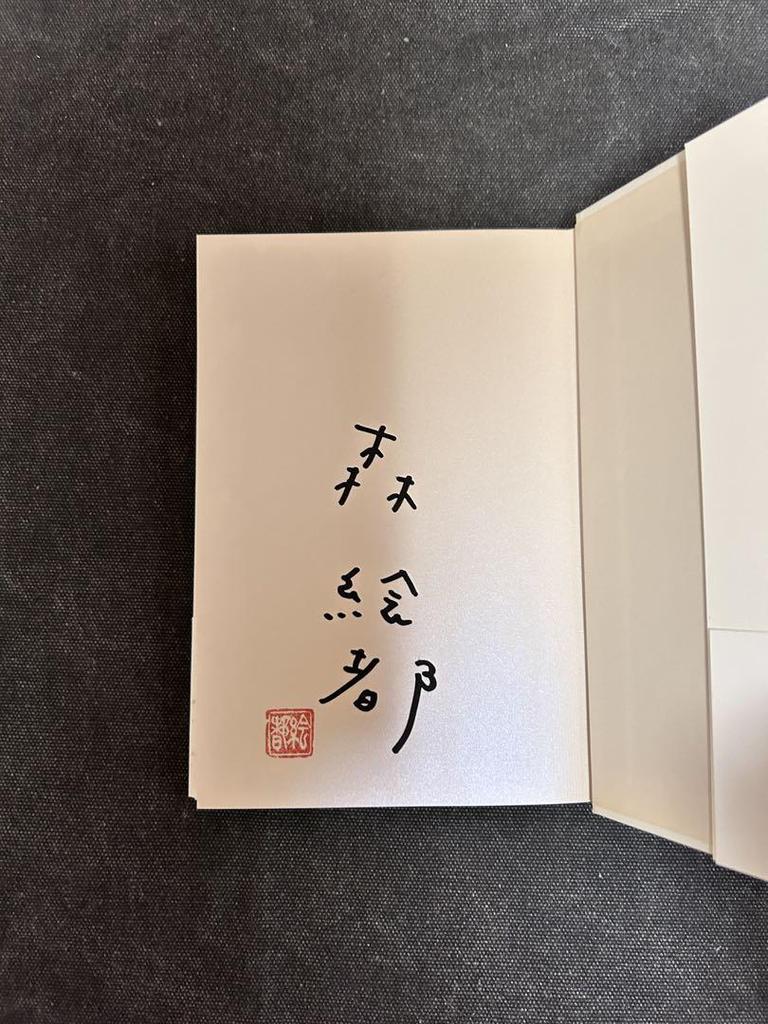 森
絵都
絵都